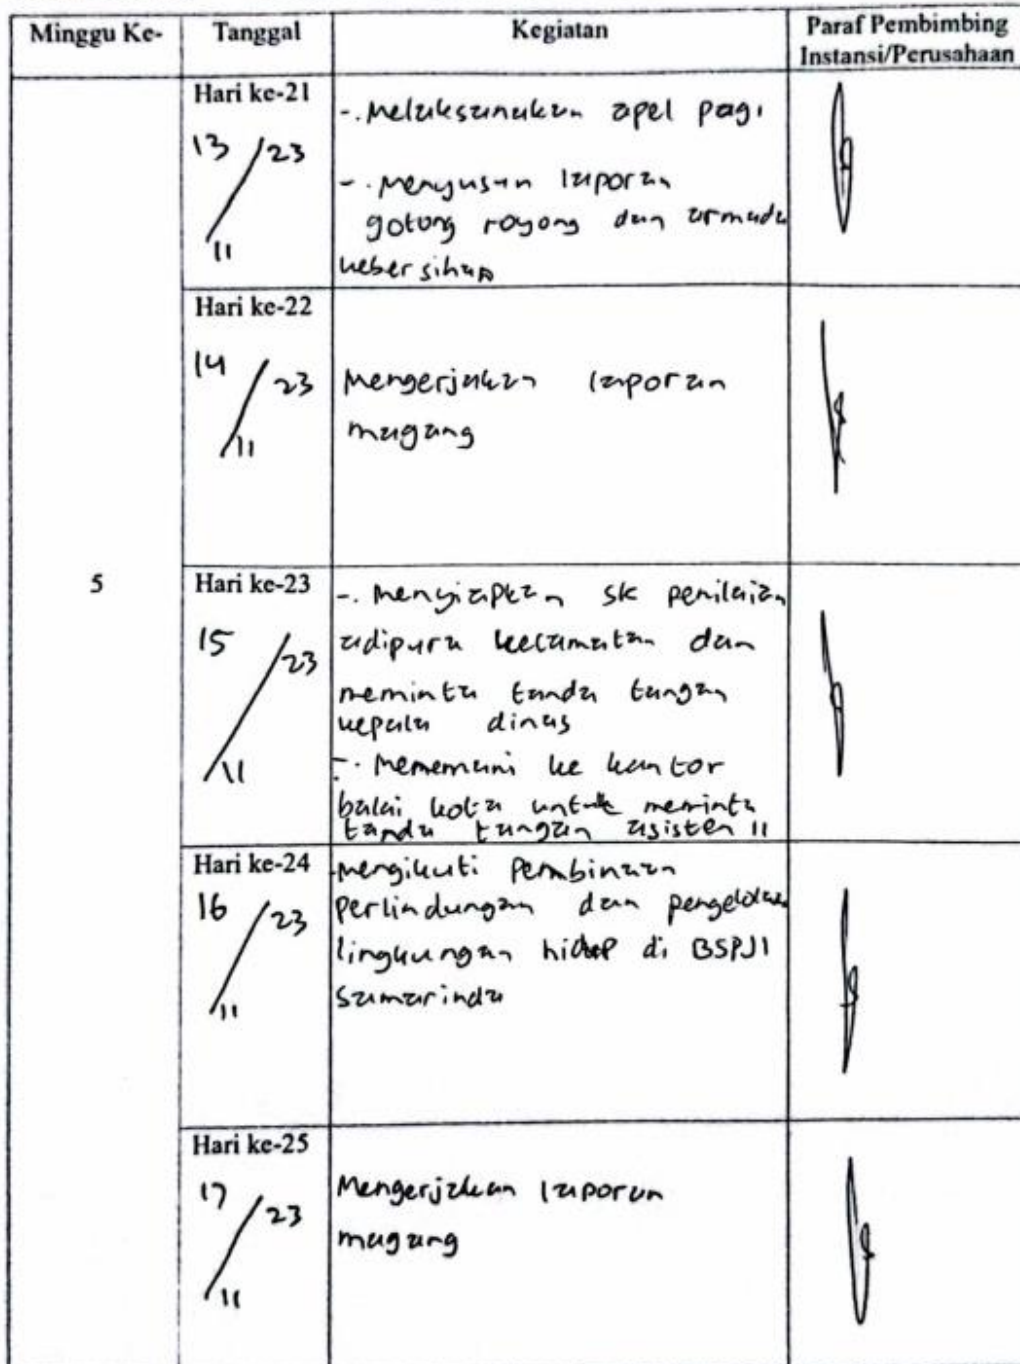 Minggu Ke-
Tanggal
Kegiatan
Paraf Pembimbing
Instansi/Perusahaan
5
Hari ke-21
13/11/23
-. Melaksanakan apel pagi
-. Menyusun laporan
gotong royong dan armada
kebersihan
Hari ke-22
14/11/23
Mengerjakan laporan
magang
Hari ke-23
15/11/23
-. Menyiapkan sk penilaian
adipura kecamatan dan
meminta tanda tangan
kepala dinas
-. Mememani ke kantor
balai kota untuk meminta
tanda tangan asisten II
Hari ke-24
16/11/23
mengikuti Pembinaan
Perlindungan dan pengelolaan
lingkungan hidup di BSPJI
Samarinda
Hari ke-25
17/11/23
Mengerjakan laporan
magang